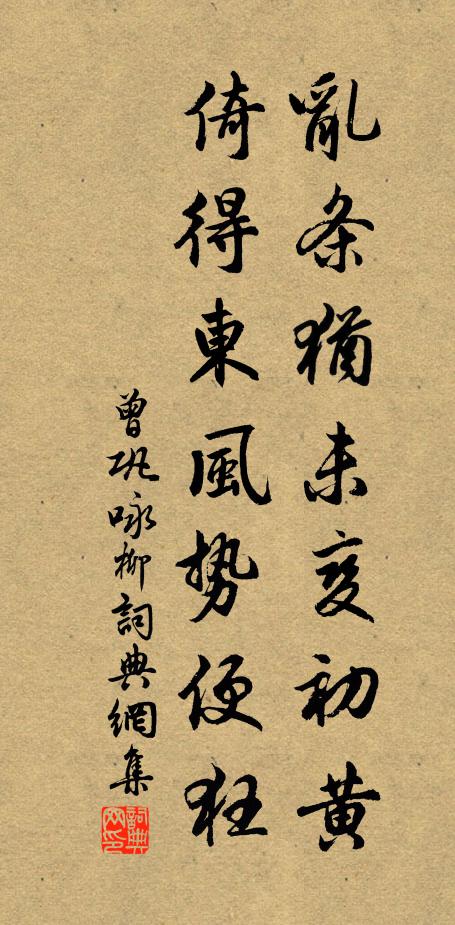 亂条猶未変初黄
倚得東風勢便狂
曾巩咏柳詞典網集
詞典
网印